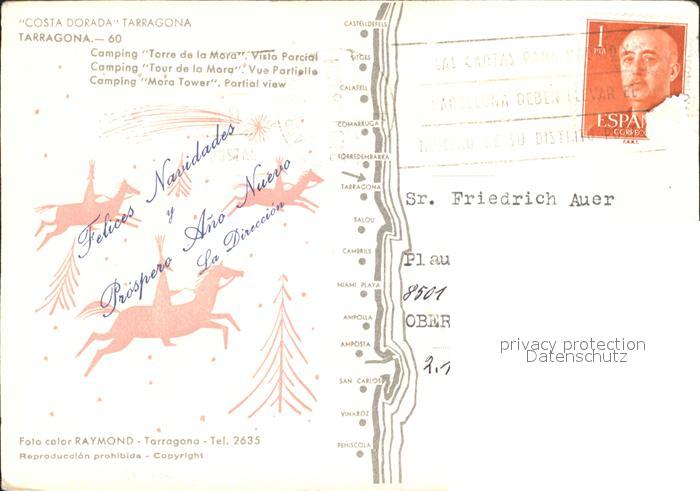 "COSTA DORADA" TARRAGONA
TARRAGONA.— 60
Camping "Torre de la Mora". Vista Parcial
Camping "Tour de la Mora". Vue Partielle
Camping "Mora Tower". Partial view
Felices Navidades
y
Próspero Año Nuevo
La Dirección
Foto color RAYMOND - Tarragona - Tel. 2635
Reproducción prohibida - Copyright
CASTELLDEFELS
SITGES
CALAFELL
COMARRUGA
TORREDEMBARRA
TARRAGONA
SALOU
CAMBRILS
MIAMI PLAYA
AMPOLLA
AMPOSTA
SAN CARLOS
VINAROZ
PEÑISCOLA
LAS CARTAS PARA
BARCELONA DEBEN LLEVAR EL
NUMERO DE SU DISTRITO
1
PTA
ESPAÑ
CORREO
F.N.M.T.
Sr. Friedrich Auer
Plau
8501
OBER
2.1
privacy protection
Datenschutz